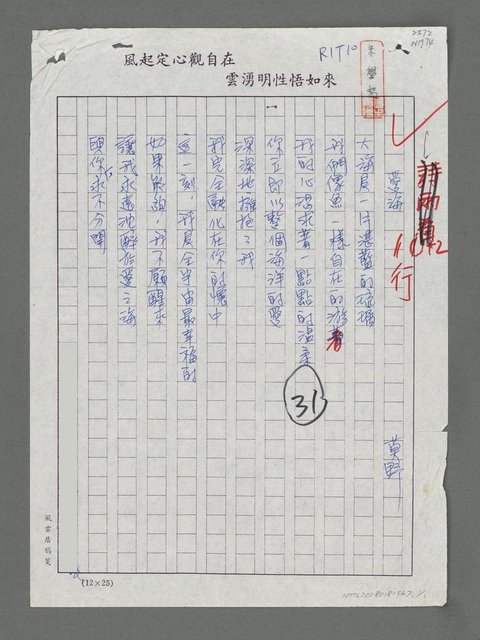 R1T10
2572
N1974
風起定心觀自在
雲湧明性悟如來
行
愛海
莫野
大海是一片湛藍的琉璃
我們像魚一樣自在的游著
我的心渴求著一點點的溫柔
你立即以整個海洋的愛
深深地擁抱了我
我完全融化在你的懷中
這一刻,我是全宇宙最幸福的
如果能夠,我不願醒來
讓我永遠沈醉於愛之海
與你永不分開
31
風雲居稿箋
(12×25)